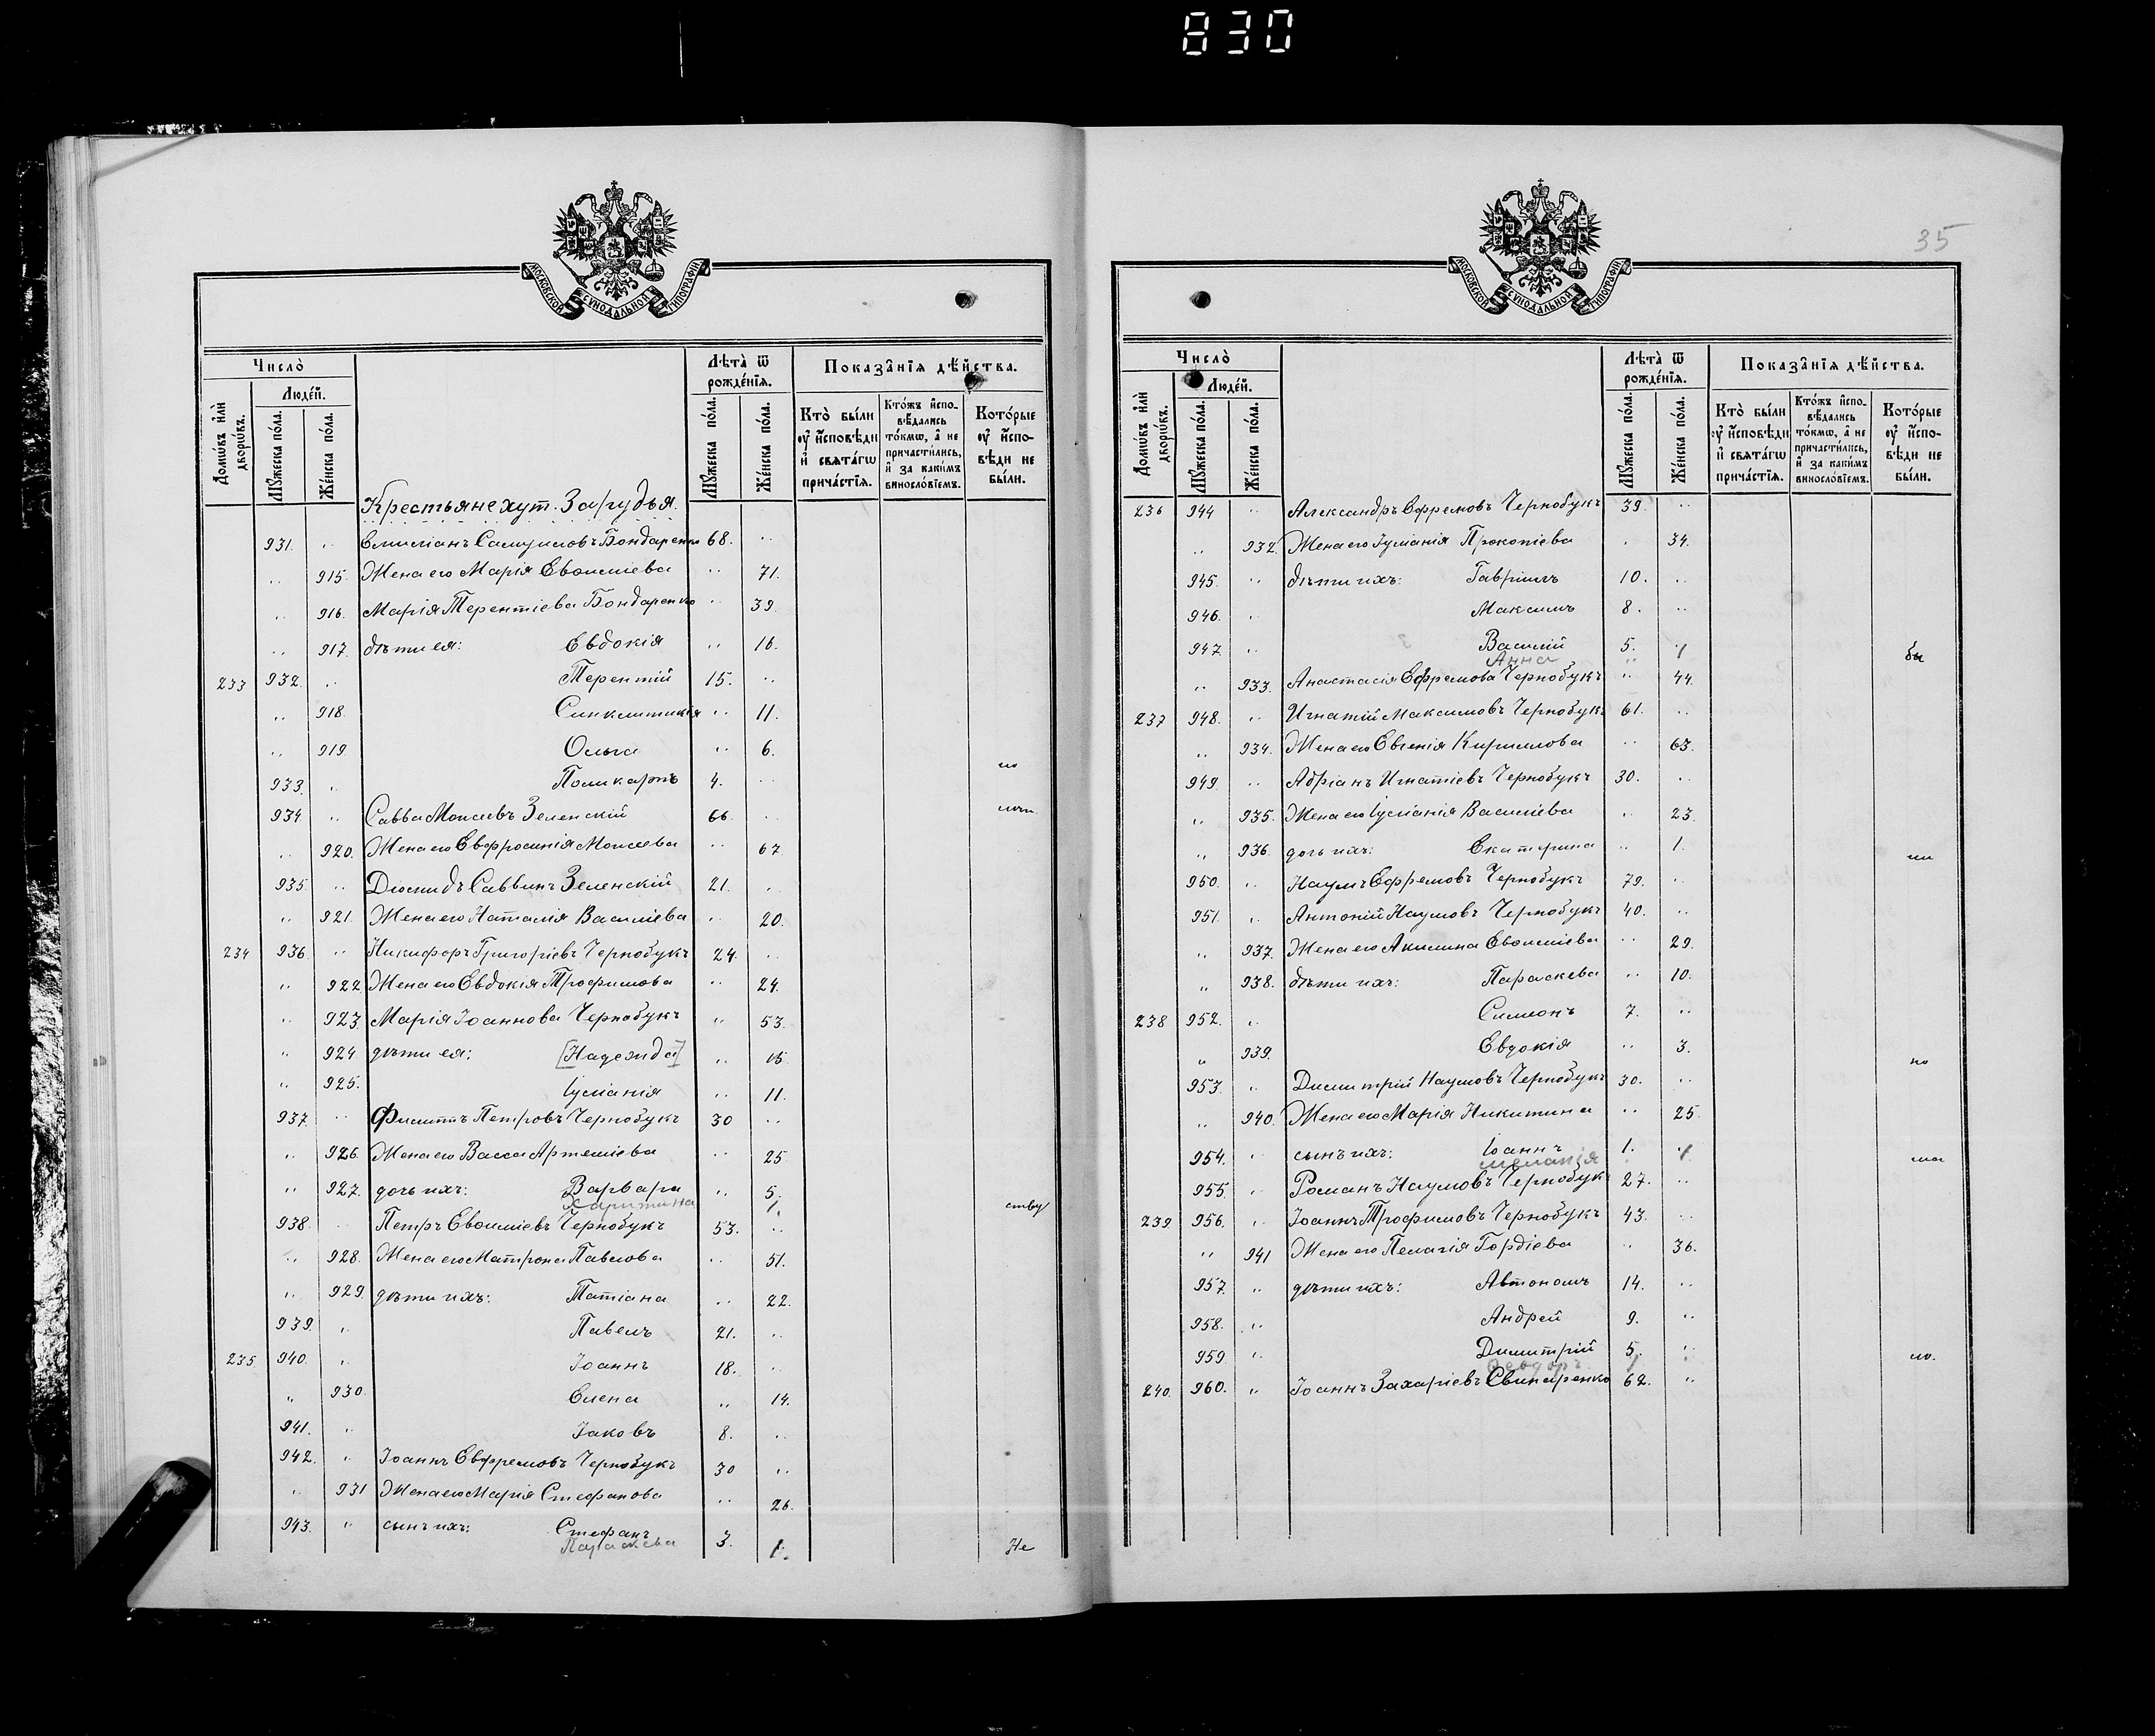 830
МОСКОВСКОЙ СУНОДАЛЬНОЙ ТИПОГРАФІИ
Число̀
Лѣта̀ ѿ рожде́нїѧ.
Показа̑нїѧ дѣ́йства.
Домѡ́въ и҆лѝ дворѡ́въ.
Люде́й.
Мꙋ́жеска по́ла.
Же́нска по́ла.
Мꙋ́жеска по́ла.
Же́нска по́ла.
Кто̀ бы́ли ᲂу҆ и҆сповѣ́ди и҆ свѧта́гѡ прича́стїѧ.
Кто́жъ и҆сповѣ́дались то́кмѡ, а҆ не причасти́лись, и҆ за каки́мъ винослов́їемъ.
Кото́рые ᲂу҆ и҆сповѣ́ди не бы́ли.
Крестьяне хут. Загудья.
931. „ Емиліанъ Самуиловъ Бондаренко 68. „
„ 915. Жена его Марія Евѳиміева „ 71.
„ 916. Марія Терентіева Бондаренко „ 39.
„ 917. дѣти ея: Евдокія „ 16.
233 932. „ Терентій 15. „
„ 918. Синклитикія „ 11.
„ 919 Ольга „ 6.
933. „ Поликарпъ 4. „
934. „ Савва Моисеевъ Зеленскій 66. „
„ 920. Жена его Евфросинія Моисеева „ 67
935. „ Діомидъ Саввинъ Зеленскій 21. „
„ 921. Жена его Наталія Василіева „ 20.
234 936. „ Никифоръ Григоріевъ Чернобукъ 24. „
„ 922. Жена его Евдокія Трофимова „ 24.
„ 923. Марія Іоаннова Чернобукъ „ 53.
„ 924 дѣти ея: [Надежда] „ 15
„ 925. Іуліанія „ 11.
937. „ Филиппъ Петровъ Чернобукъ 30 „
„ 926. Жена его Васса Артеміева „ 25
„ 927. дочь ихъ: Варвара „ 5.
Харитина 1. ству
938. „ Петръ Евѳиміевъ Чернобукъ 53. „
„ 928. Жена его Матрона Павлова „ 51.
„ 929. дѣти ихъ: Татіана „ 22.
939. „ Павелъ 21. „
235. 940. „ Іоаннъ 18. „
„ 930. Елена „ 14.
941. „ Іаковъ 8. „
942. „ Іоаннъ Евфремовъ Чернобукъ 30 „
„ 931 Жена его Марія Стефанова „ 26.
943. „ сынъ ихъ: Стефанъ 3.
Параскева 1. Не
35
МОСКОВСКОЙ СУНОДАЛЬНОЙ ТИПОГРАФІИ
Число̀
Лѣта̀ ѿ рожде́нїѧ.
Показа̑нїѧ дѣ́йства.
Домѡ́въ и҆лѝ дворѡ́въ.
Люде́й.
Мꙋ́жеска по́ла.
Же́нска по́ла.
Мꙋ́жеска по́ла.
Же́нска по́ла.
Кто̀ бы́ли ᲂу҆ и҆сповѣ́ди и҆ свѧта́гѡ прича́стїѧ.
Кто́жъ и҆сповѣ́дались то́кмѡ, а҆ не причасти́лись, и҆ за каки́мъ винослов́їемъ.
Кото́рые ᲂу҆ и҆сповѣ́ди не бы́ли.
236 944 „ Александръ Ефремовъ Чернобукъ 39. „
„ 932. Жена его Іуліанія Прокопіева „ 34.
945. „ дѣти ихъ: Гавріилъ 10. „
946. „ Максимъ 8. „
947 „ Василій 5. 1 бы
Анна
„ 933. Анастасія Ефремова Чернобукъ „ 44.
237 948. „ Игнатій Максимовъ Чернобукъ 61. „
„ 934. Жена его Евгенія Кириллова „ 63.
949. „ Адріанъ Игнатіевъ Чернобукъ 30. „
„ 935. Жена его Іуліанія Василіева „ 23.
„ 936. дочь ихъ: Екатерина „ 1. ли
950. „ Наумъ Ефремовъ Чернобукъ 79. „
951. „ Антоній Наумовъ Чернобукъ 40. „
„ 937. Жена его Акилина Евѳиміева „ 29.
„ 938. дѣти ихъ: Параскева „ 10.
238 952. „ Симеонъ 7. „
„ 939. Евдокія „ 3. по
953. „ Димитрій Наумовъ Чернобукъ 30. „
„ 940. Жена его Марія Никитина „ 25.
954. „ сынъ ихъ: Іоаннъ 1. 1
Меланія
955. „ Романъ Наумовъ Чернобукъ 27. „
239. 956. „ Іоаннъ Трофимовъ Чернобукъ 43. „
„ 941 Жена его Пелагія Гордіева „ 36.
957. „ дѣти ихъ: Автономъ 14. „
958. „ Андрей 9. „
959 „ Димитрій 5. „
Ѳеодоръ 1
240. 960. „ Іоаннъ Захаріевъ Свинаренко 62. „